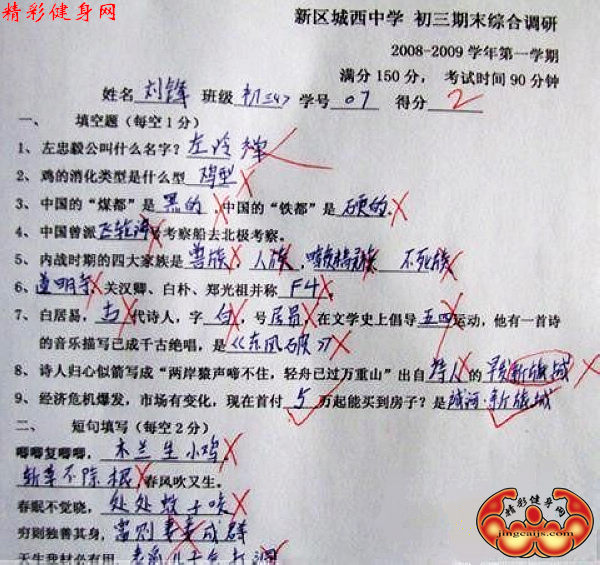 精彩健身网
新区城西中学 初三期末综合调研
2008-2009学年第一学期
满分150分， 考试时间90分钟
姓名 刘锋 班级 初三4> 学号 07 得分 2
一、 填空题（每空1分）
1、左忠毅公叫什么名字？左冷禅
2、鸡的消化类型是什么型 鸡型
3、中国的“煤都”是 黑的，中国的“铁都”是 硬的。
4、中国曾派飞轮海号考察船去北极考察。
5、内战时期的四大家族是 兽族，人族，暗夜精灵族 不死族
6、道明寺 关汉卿、白朴、郑光祖并称 F4。
7、白居易，古 代诗人，字 白，号 居易，在文学史上倡导 五四 运动，他有一首诗
的音乐描写已成千古绝唱，是《东风破》
8、诗人归心似箭写成“两岸猿声啼不住，轻舟已过万重山”出自 诗人 的 新旅城
9、经济危机爆发，市场有变化，现在首付 5 万起能买到房子？是 新旅城
二、 短句填写（每空2分）
唧唧复唧唧，木兰生小鸡
斩草不除根 春风吹又生。
春眠不觉晓，处处蚊子咬
穷则独善其身，富则妻妾成群
天生我材必有用，
精彩健身网
jingcaijs.com